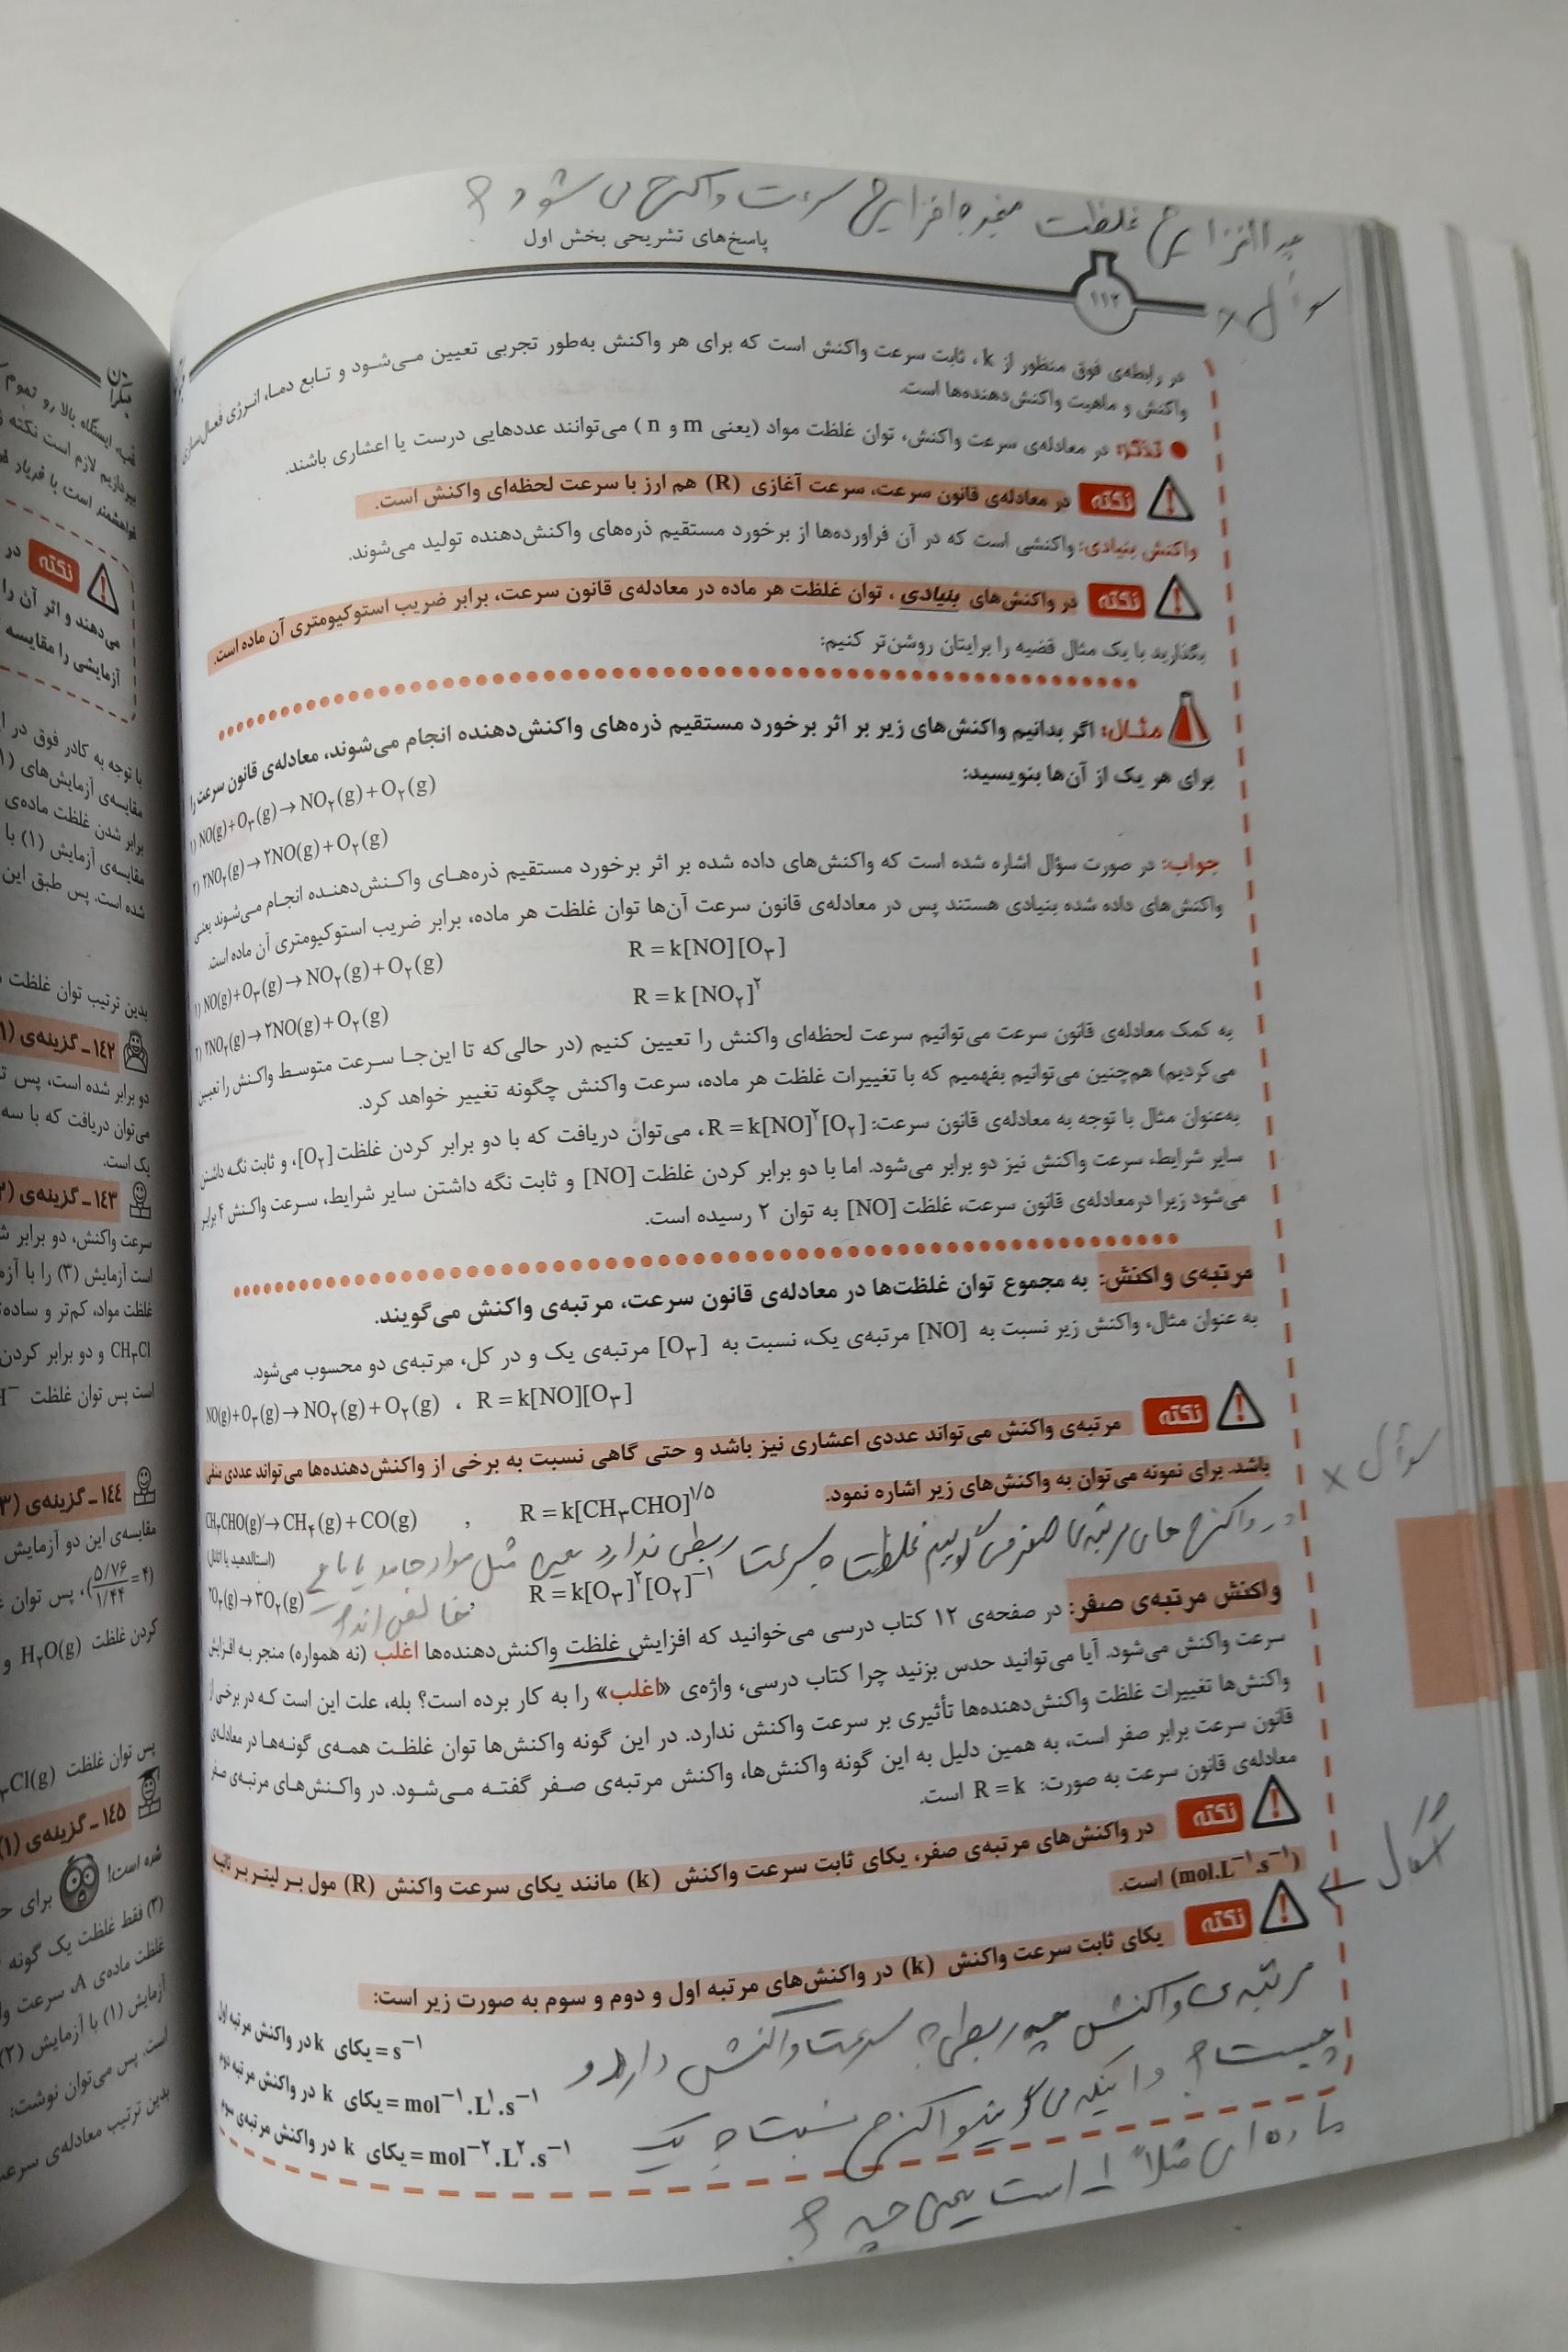 چرا افزایش غلظت منجر به افزایش سرعت واکنش می شود ؟
پاسخ‌های تشریحی بخش اول
۱۱۲
سؤال
در رابطه‌ی فوق منظور از k، ثابت سرعت واکنش است که برای هر واکنش به‌طور تجربی تعیین می‌شود و تابع دما، انرژی فعال‌سازی
واکنش و ماهیت واکنش‌دهنده‌ها است.
● تذکر: در معادله‌ی سرعت واکنش، توان غلظت مواد (یعنی m و n) می‌توانند عددهایی درست یا اعشاری باشند.
نکته در معادله‌ی قانون سرعت، سرعت آغازی (R) هم ارز با سرعت لحظه‌ای واکنش است.
واکنش بنیادی: واکنشی است که در آن فراورده‌ها از برخورد مستقیم ذره‌های واکنش‌دهنده تولید می‌شوند.
نکته در واکنش‌های بنیادی، توان غلظت هر ماده در معادله‌ی قانون سرعت، برابر ضریب استوکیومتری آن ماده است.
بگذارید با یک مثال قضیه را برایتان روشن‌تر کنیم:
مثال: اگر بدانیم واکنش‌های زیر بر اثر برخورد مستقیم ذره‌های واکنش‌دهنده انجام می‌شوند، معادله‌ی قانون سرعت را
برای هر یک از آن‌ها بنویسید:
۱) NO(g)+O۳(g)→NO۲(g)+O۲(g)
۲) ۲NO۲(g)→۲NO(g)+O۲(g)
جواب: در صورت سؤال اشاره شده است که واکنش‌های داده شده بر اثر برخورد مستقیم ذره‌های واکنش‌دهنده انجام می‌شوند یعنی
واکنش‌های داده شده بنیادی هستند پس در معادله‌ی قانون سرعت آن‌ها توان غلظت هر ماده، برابر ضریب استوکیومتری آن ماده است.
۱) NO(g)+O۳(g)→NO۲(g)+O۲(g) R=k[NO][O۳]
۲) ۲NO۲(g)→۲NO(g)+O۲(g) R=k[NO۲]^۲
به کمک معادله‌ی قانون سرعت می‌توانیم سرعت لحظه‌ای واکنش را تعیین کنیم (در حالی‌که تا این‌جا سرعت متوسط واکنش را تعیین
می‌کردیم) هم‌چنین می‌توانیم بفهمیم که با تغییرات غلظت هر ماده، سرعت واکنش چگونه تغییر خواهد کرد.
به‌عنوان مثال با توجه به معادله‌ی قانون سرعت: R=k[NO]^۲[O۲]، می‌توان دریافت که با دو برابر کردن غلظت [O۲]، و ثابت نگه داشتن
سایر شرایط، سرعت واکنش نیز دو برابر می‌شود. اما با دو برابر کردن غلظت [NO] و ثابت نگه داشتن سایر شرایط، سرعت واکنش ۴ برابر
می‌شود زیرا درمعادله‌ی قانون سرعت، غلظت [NO] به توان ۲ رسیده است.
مرتبه‌ی واکنش: به مجموع توان غلظت‌ها در معادله‌ی قانون سرعت، مرتبه‌ی واکنش می‌گویند.
به عنوان مثال، واکنش زیر نسبت به [NO] مرتبه‌ی یک، نسبت به [O۳] مرتبه‌ی یک و در کل، مرتبه‌ی دو محسوب می‌شود.
NO(g)+O۳(g)→NO۲(g)+O۲(g) ، R=k[NO][O۳]
نکته مرتبه‌ی واکنش می‌تواند عددی اعشاری نیز باشد و حتی گاهی نسبت به برخی از واکنش‌دهنده‌ها می‌تواند عددی منفی
باشد. برای نمونه می‌توان به واکنش‌های زیر اشاره نمود.
سؤال
CH۳CHO(g)→CH۴(g)+CO(g) , R=k[CH۳CHO]^۱/۵
(استالدهید یا اتانال)
در واکنش های مرتبه ی صفر می گوییم غلظت به سرعت ربطی ندارد یعنی مثل مواد جامد یا مایع
خالص اند؟
۲O۳(g)→۳O۲(g) , R=k[O۳]^۲[O۲]^−۱
واکنش مرتبه‌ی صفر: در صفحه‌ی ۱۲ کتاب درسی می‌خوانید که افزایش غلظت واکنش‌دهنده‌ها اغلب (نه همواره) منجر به افزایش
سرعت واکنش می‌شود. آیا می‌توانید حدس بزنید چرا کتاب درسی، واژه‌ی «اغلب» را به کار برده است؟ بله، علت این است که در برخی از
واکنش‌ها تغییرات غلظت واکنش‌دهنده‌ها تأثیری بر سرعت واکنش ندارد. در این گونه واکنش‌ها توان غلظت همه‌ی گونه‌ها در معادله‌ی
قانون سرعت برابر صفر است، به همین دلیل به این گونه واکنش‌ها، واکنش مرتبه‌ی صفر گفته می‌شود. در واکنش‌های مرتبه‌ی صفر
معادله‌ی قانون سرعت به صورت: R=k است.
نکته در واکنش‌های مرتبه‌ی صفر، یکای ثابت سرعت واکنش (k) مانند یکای سرعت واکنش (R) مول بر لیتر بر ثانیه
(mol.L^−۱.s^−۱) است.
نکته یکای ثابت سرعت واکنش (k) در واکنش‌های مرتبه اول و دوم و سوم به صورت زیر است:
s^−۱ = یکای k در واکنش مرتبه اول
mol^−۱.L^۱.s^−۱ = یکای k در واکنش مرتبه دوم
mol^−۲.L^۲.s^−۱ = یکای k در واکنش مرتبه‌ی سوم
مرتبه ی واکنش چه ربطی به سرعت واکنش دارد و
چیست؟ و اینکه می گویند واکنش نسبت به یک
ماده ای مثلاً ۱− است یعنی چه ؟
نکته در
می‌دهند و اثر آن را
آزمایشی را مقایسه
با توجه به کادر فوق در
مقایسه‌ی آزمایش‌های (۱
برابر شدن غلظت ماده‌ی
مقایسه‌ی آزمایش (۱) با
شده است. پس طبق این
بدین ترتیب توان غلظت
۱۴۲ ـ گزینه‌ی (۱
دو برابر شده است، پس
می‌توان دریافت که با سه
یک است.
۱۴۳ ـ گزینه‌ی (۲
سرعت واکنش، دو برابر
است آزمایش (۳) را با
غلظت مواد، کم‌تر و ساده
CH۳Cl و دو برابر کردن
است پس توان غلظت
۱۴۴ ـ گزینه‌ی (۳
مقایسه‌ی این دو آزمایش
(۴=۵/۷۶/۱/۴۴)، پس توان
کردن غلظت H۲O(g) و
پس توان غلظت
۱۴۵ ـ گزینه‌ی (۱)
شده است! برای
(۲) فقط غلظت یک گونه
غلظت ماده‌ی A، سرعت
آزمایش (۱) با آزمایش (۲)
است. پس می‌توان نوشت:
بدین ترتیب معادله‌ی